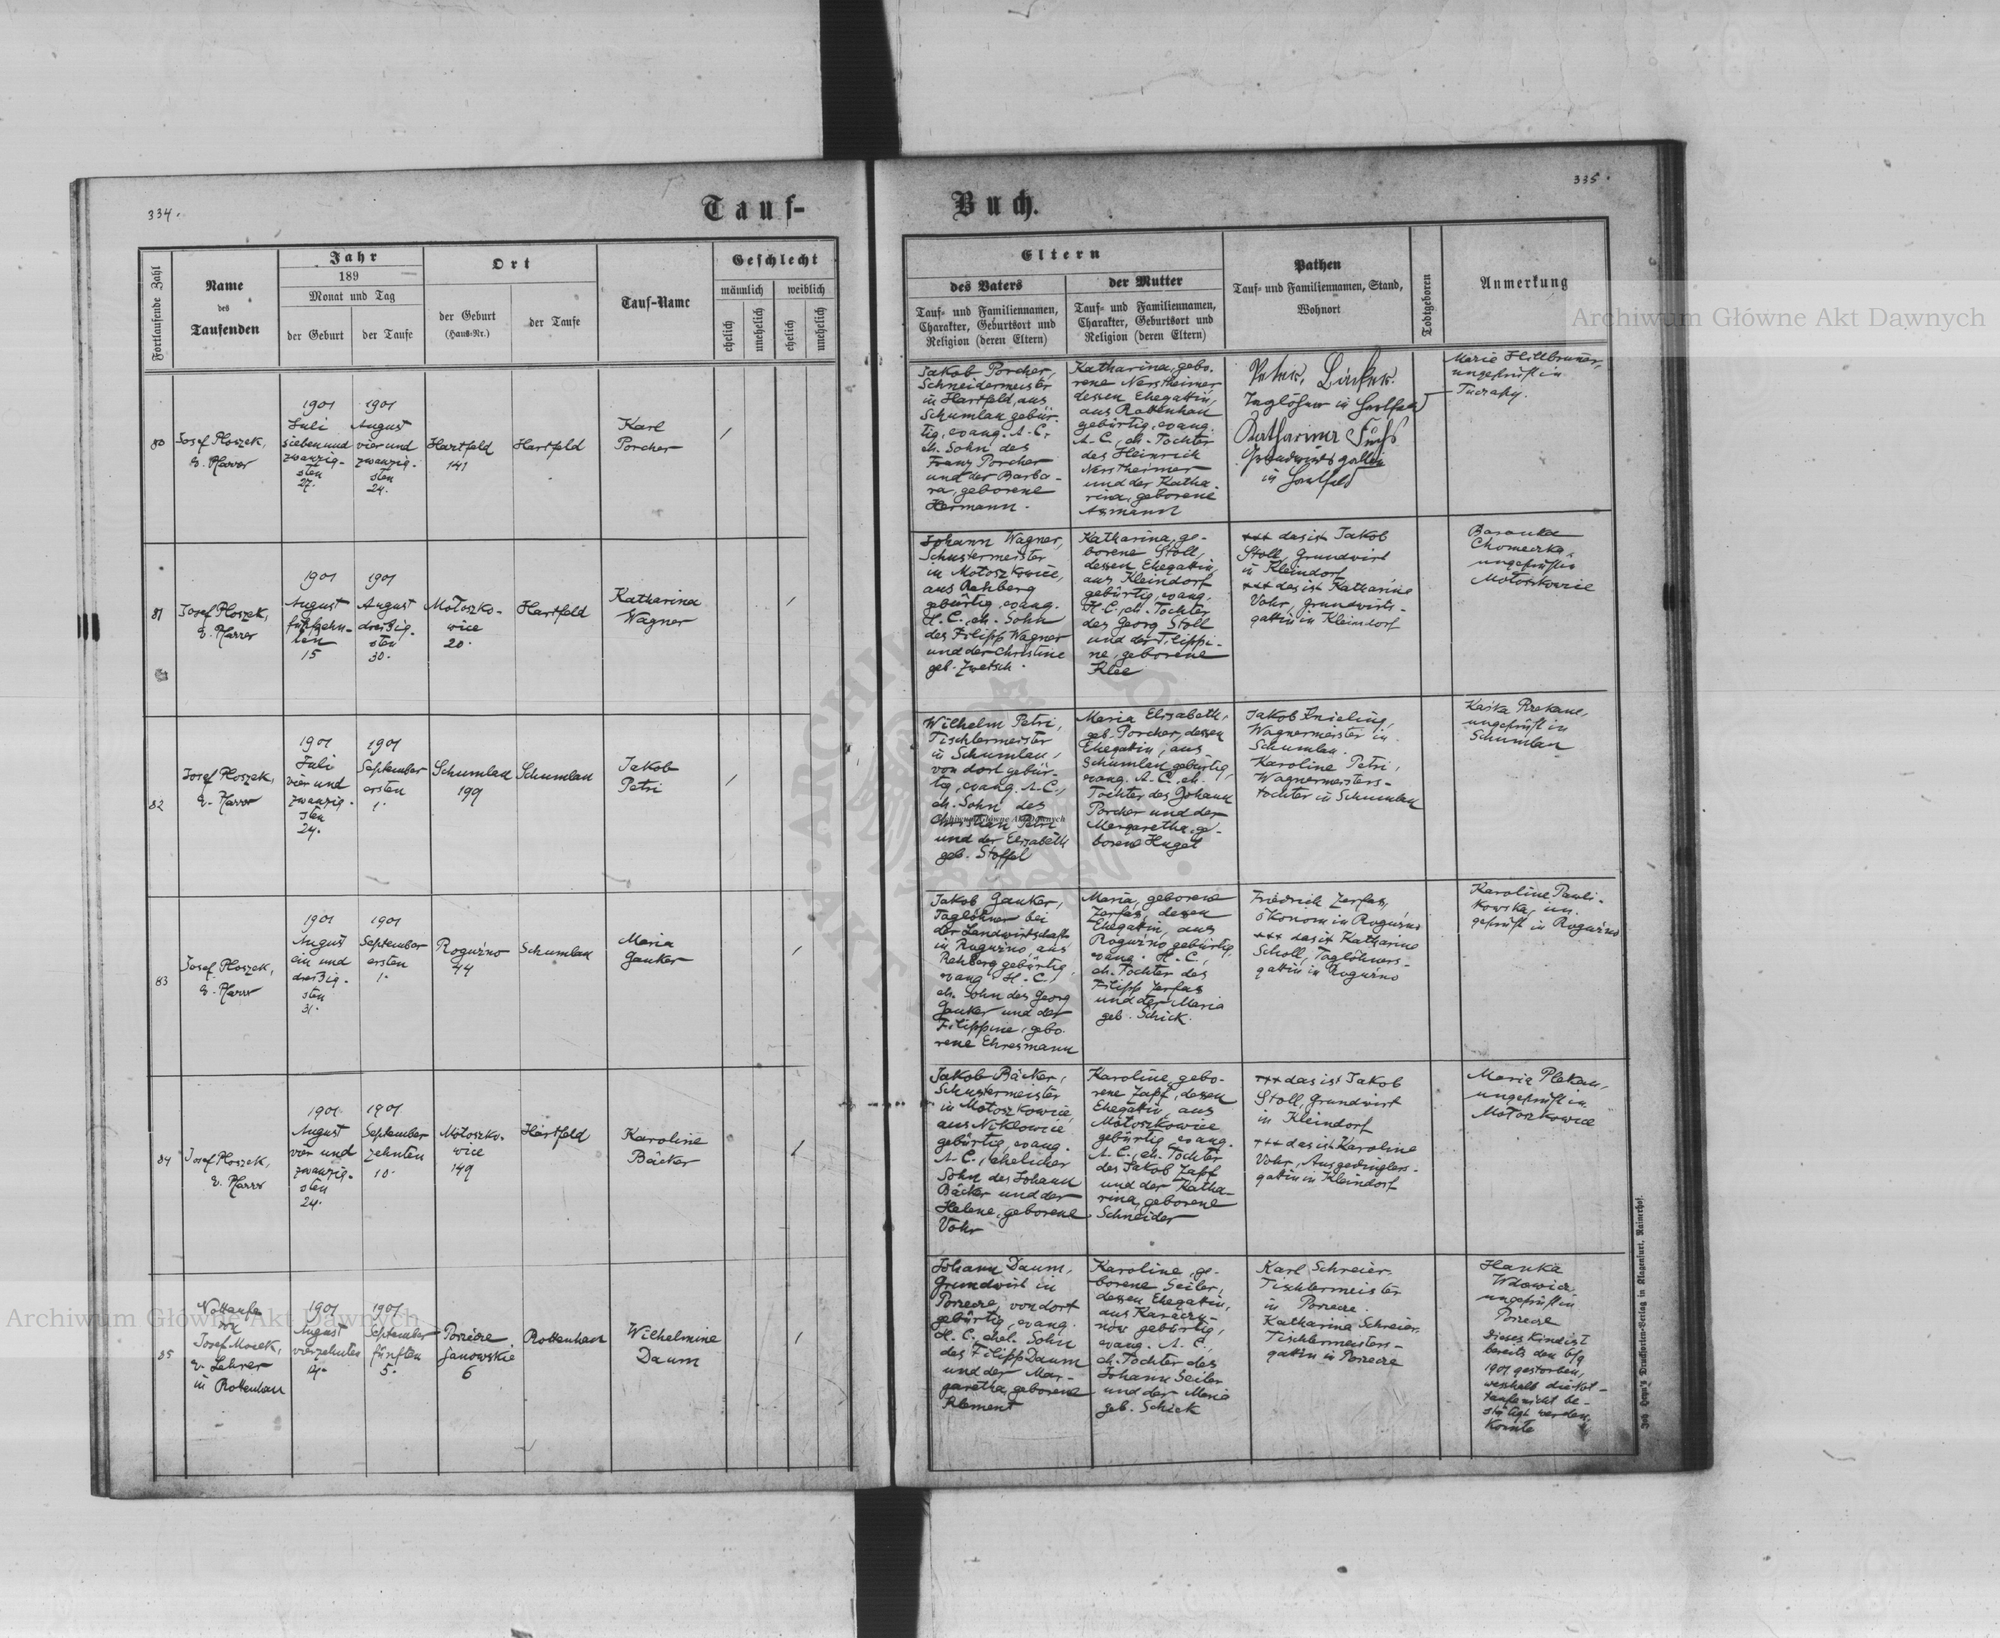 334.
335.
Tauf-
Buch.
Fortlaufende Zahl
Name
des
Taufenden
Jahr
189
Monat und Tag
der Geburt
der Taufe
Ort
der Geburt
(Haus-Nr.)
der Taufe
Tauf-Name
Geschlecht
männlich
weiblich
ehelich
unehelich
ehelich
unehelich
Eltern
des Vaters
Tauf- und Familiennamen,
Charakter, Geburtsort und
Religion (deren Eltern)
der Mutter
Tauf- und Familiennamen,
Charakter, Geburtsort und
Religion (deren Eltern)
Pathen
Tauf- und Familiennamen, Stand,
Wohnort
Todtgeboren
Anmerkung
Archiwum Główne Akt Dawnych
80
Josef Ploszek,
ev. Pfarrer
1901
Juli
sieben und
zwanzig-
sten
27.
1901
August
vier und
zwanzig-
sten
24.
Hartfeld
141
Hartfeld
Karl
Porcher
/
Jakob Porcher,
Schneidermeister
in Hartfeld, aus
Schumlau gebür-
tig, evang. A. C.,
eh. Sohn des
Franz Porcher
und der Barba-
ra, geborene
Hermann.
Katharina, gebo-
rene Nerstheimer
dessen Ehegattin,
aus Rottenhan
gebürtig, evang.
A. C., eh. Tochter
des Heinrich
Nerstheimer
und der Katha-
rina, geborene
Asmann
Peter Bäcker
Taglöhner in Hartfeld
Katharina Fuchs
Grundwirtsgattin
in Hartfeld
Marie
ungeprüft in
81
Josef Ploszek,
ev. Pfarrer
1901
August
fünfzehn-
ten
15
1901
August
dreißig-
sten
30.
Motoszko-
wice
20.
Hartfeld
Katharina
Wagner
/
Johann Wagner,
Schustermeister
in Motoszkowice,
aus Rehberg
gebürtig, evang.
H. C., eh. Sohn
des Filipp Wagner
und der Christine
geb. Zwetsch.
Katharina, ge-
borene Stoll,
dessen Ehegattin,
aus Kleindorf
gebürtig, evang.
H. C., eh. Tochter
des Georg Stoll
und der Filippi-
ne, geborene
Klee
+++ das ist Jakob
Stoll, Grundwirt
in Kleindorf
+++ das ist Katharine
Vohr, Grundwirts-
gattin in Kleindorf
Baranka
ungeprüft in
Motoszkowice
82
Josef Ploszek,
ev. Pfarrer
1901
Juli
vier und
zwanzig-
sten
24.
1901
September
ersten
1.
Schumlau
199
Schumlau
Jakob
Petri
/
Wilhelm Petri,
Tischlermeister
in Schumlau,
von dort gebür-
tig, evang. A. C.,
eh. Sohn des
Christian Petri
und der Elisabeth
geb. Stoffel
Maria Elisabeth,
geb. Porcher, dessen
Ehegattin, aus
Schumlau gebürtig,
evang. A. C., eh.
Tochter des Johann
Porcher und der
Margaretha, ge-
borene Hugel
Jakob Knieling,
Wagnermeister in
Schumlau.
Karoline Petri,
Wagnermeisters-
tochter in Schumlau
Kaśka
ungeprüft in
Schumlau
83
Josef Ploszek,
ev. Pfarrer
1901
August
ein und
dreißig-
sten
31.
1901
September
ersten
1.
Roguźno
44
Schumlau
Maria
Gauker
/
Jakob Gauker,
Taglöhner bei
der Landwirtschaft
in Roguźno, aus
Rehberg gebürtig,
evang. H. C.,
eh. Sohn des Georg
Gauker und der
Filippine, gebo-
rene Ehresmann
Maria, geborene
Zerfas, dessen
Ehegattin, aus
Roguźno gebürtig,
evang. H. C.,
eh. Tochter des
Filipp Zerfas
und der Maria
geb. Schick.
Friedrich Zerfas,
Ökonom in Roguźno
+++ das ist Katharine
Scholl, Taglöhners-
gattin in Roguźno
Karoline Pauli-
kowska, un-
geprüft in Roguźno
84
Josef Ploszek,
ev. Pfarrer
1901
August
vier und
zwanzig-
sten
24.
1901
September
zehnten
10.
Motoszko-
wice
149
Hartfeld
Karoline
Bäcker
/
Jakob Bäcker,
Schustermeister
in Motoszkowice,
aus Niklowice
gebürtig, evang.
A. C., ehelicher
Sohn des Johann
Bäcker und der
Helene, geborene
Vohr
Karoline, gebo-
rene Zapf, dessen
Ehegattin, aus
Motoszkowice
gebürtig, evang.
A. C., eh. Tochter
des Jakob Zapf
und der Katha-
rina, geborene
Schneider
+++ das ist Jakob
Stoll, Grundwirt
in Kleindorf
+++ das ist Karoline
Vohr, Ausgedinglers-
gattin in Kleindorf
Maria Plekan,
ungeprüft in
Motoszkowice
85
Nottaufe
Josef Mosek,
ev. Lehrer
in Rottenhan
1901
August
vierzehnten
14.
1901
September
fünften
5.
Porzecze
Janowskie
6
Rottenhan
Wilhelmine
Daum
/
Johann Daum,
Grundwirt in
Porzecze, von dort
gebürtig, evang.
H. C., ehel. Sohn
des Filipp Daum
und der Mar-
garetha, geborene
Klement
Karoline, ge-
borene Seiler,
dessen Ehegattin,
aus Karaczy-
nów gebürtig,
evang. A. C.,
eh. Tochter des
Johann Seiler
und der Maria
geb. Schick
Karl Schreier,
Tischlermeister
in Porzecze.
Katharina Schreier,
Tischlermeisters-
gattin in Porzecze
Hanka
Wdowicz,
ungeprüft in
Porzecze
Dieses Kind ist
bereits den 6/9
1901 gestorben,
weshalb die Not-
taufe nicht be-
stätigt werden
konnte
Archiwum Główne Akt Dawnych
Archiwum Główne Akt Dawnych
Joh. Heyn's Drucksorten-Verlag in Klagenfurt, Rainerhof.